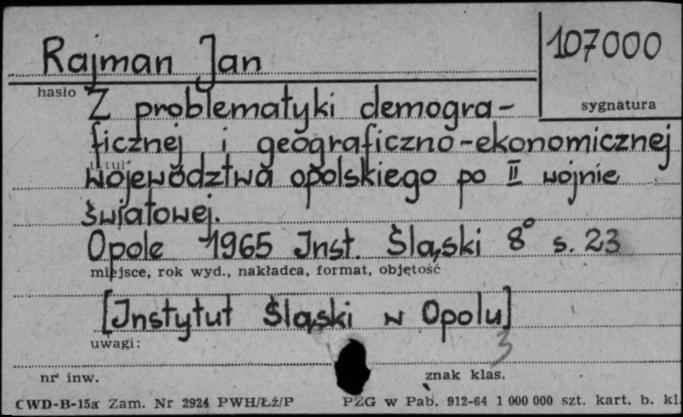 Rajman Jan
107000
hasło
sygnatura
Z problematyki demogra-
ficznej i geograficzno-ekonomicznej
tytuł
województwa opolskiego po II wojnie
światowej.
Opole 1965 Inst. Śląski 8° s. 23
miejsce, rok wyd., nakładca, format, objętość
[Instytut Śląski w Opolu]
uwagi:
3
nr inw.
znak klas.
CWD-B-15a Zam. Nr 2924 PWH/Łź/P
PZG w Pab. 912-64 1 000 000 szt. kart. b. kl.